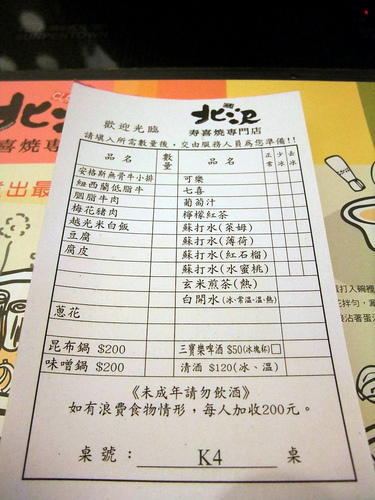 北沢
喜燒專
出最
歡迎光臨
北沢
寿喜燒專門店
請填入所需數量後，交由服務人員為您準備!!
品名 數量 品名 正常 少冰 去冰
安格斯無骨牛小排 可樂
紐西蘭低脂牛 七喜
胭脂牛肉 葡萄汁
梅花豬肉 檸檬紅茶
越光米白飯 蘇打水(萊姆)
豆腐 蘇打水(薄荷)
腐皮 蘇打水(紅石榴)
蘇打水(水蜜桃)
玄米煎茶(熱)
白開水(冰·常溫·溫·熱)
蔥花
昆布鍋 $200 三寶樂啤酒 $50(冰塊杯)□
味噌鍋 $200 清酒 $120(冰、溫)
《未成年請勿飲酒》
如有浪費食物情形，每人加收200元。
桌號： K4 桌
打入碗裡
花拌勻，
沾著蛋